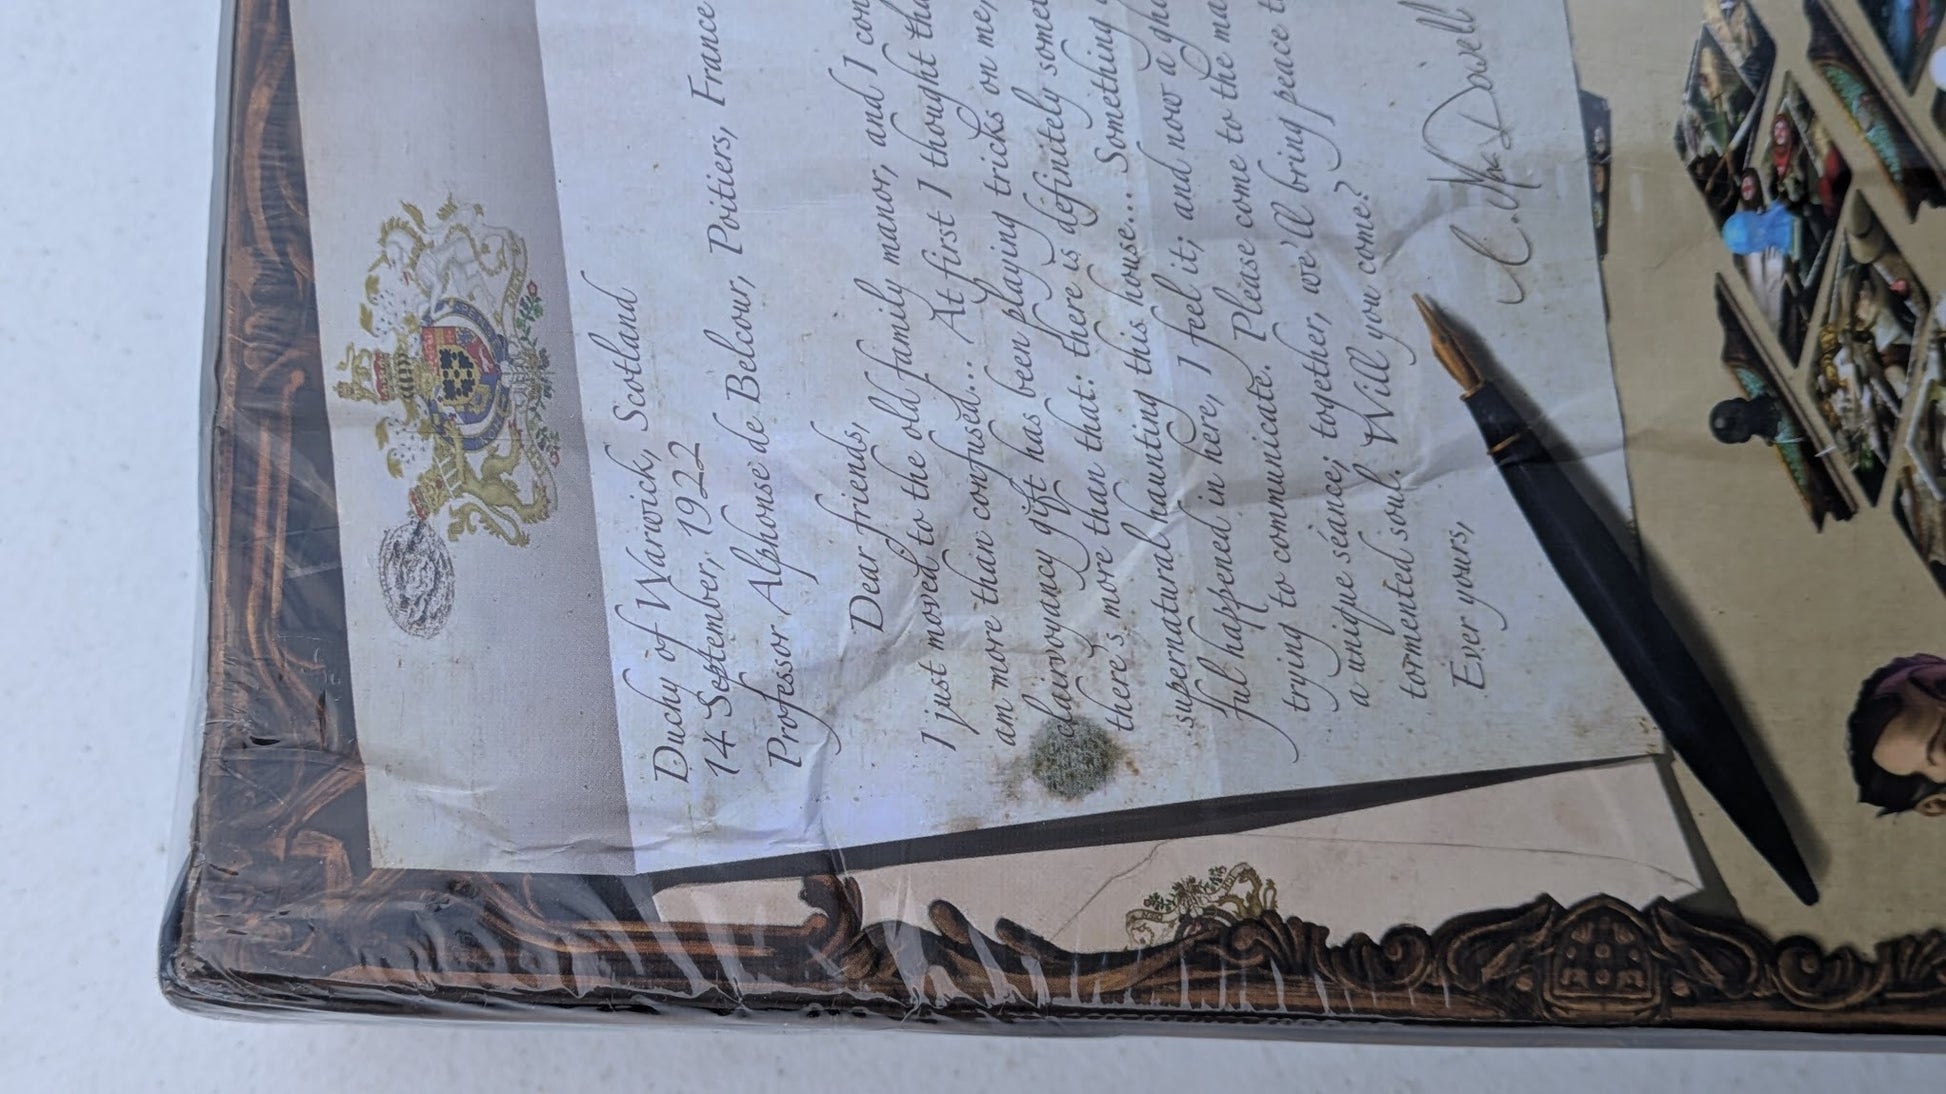 Duchy of Warwick, Scotland
14 September, 1922
Professor Alphonse de Belcour, Poitiers, France
Dear friends,
I just moved to the old family manor, and I
am more than confused... At first I thought
clairvoyancy gift has been playing tricks on me,
there's more than that: there is definitely
supernatural haunting this house... Something
ful happened in here, I feel it; and now a
trying to communicate. Please come to the
a unique séance; together, we'll bring peace
tormented soul. Will you come?
Ever yours,